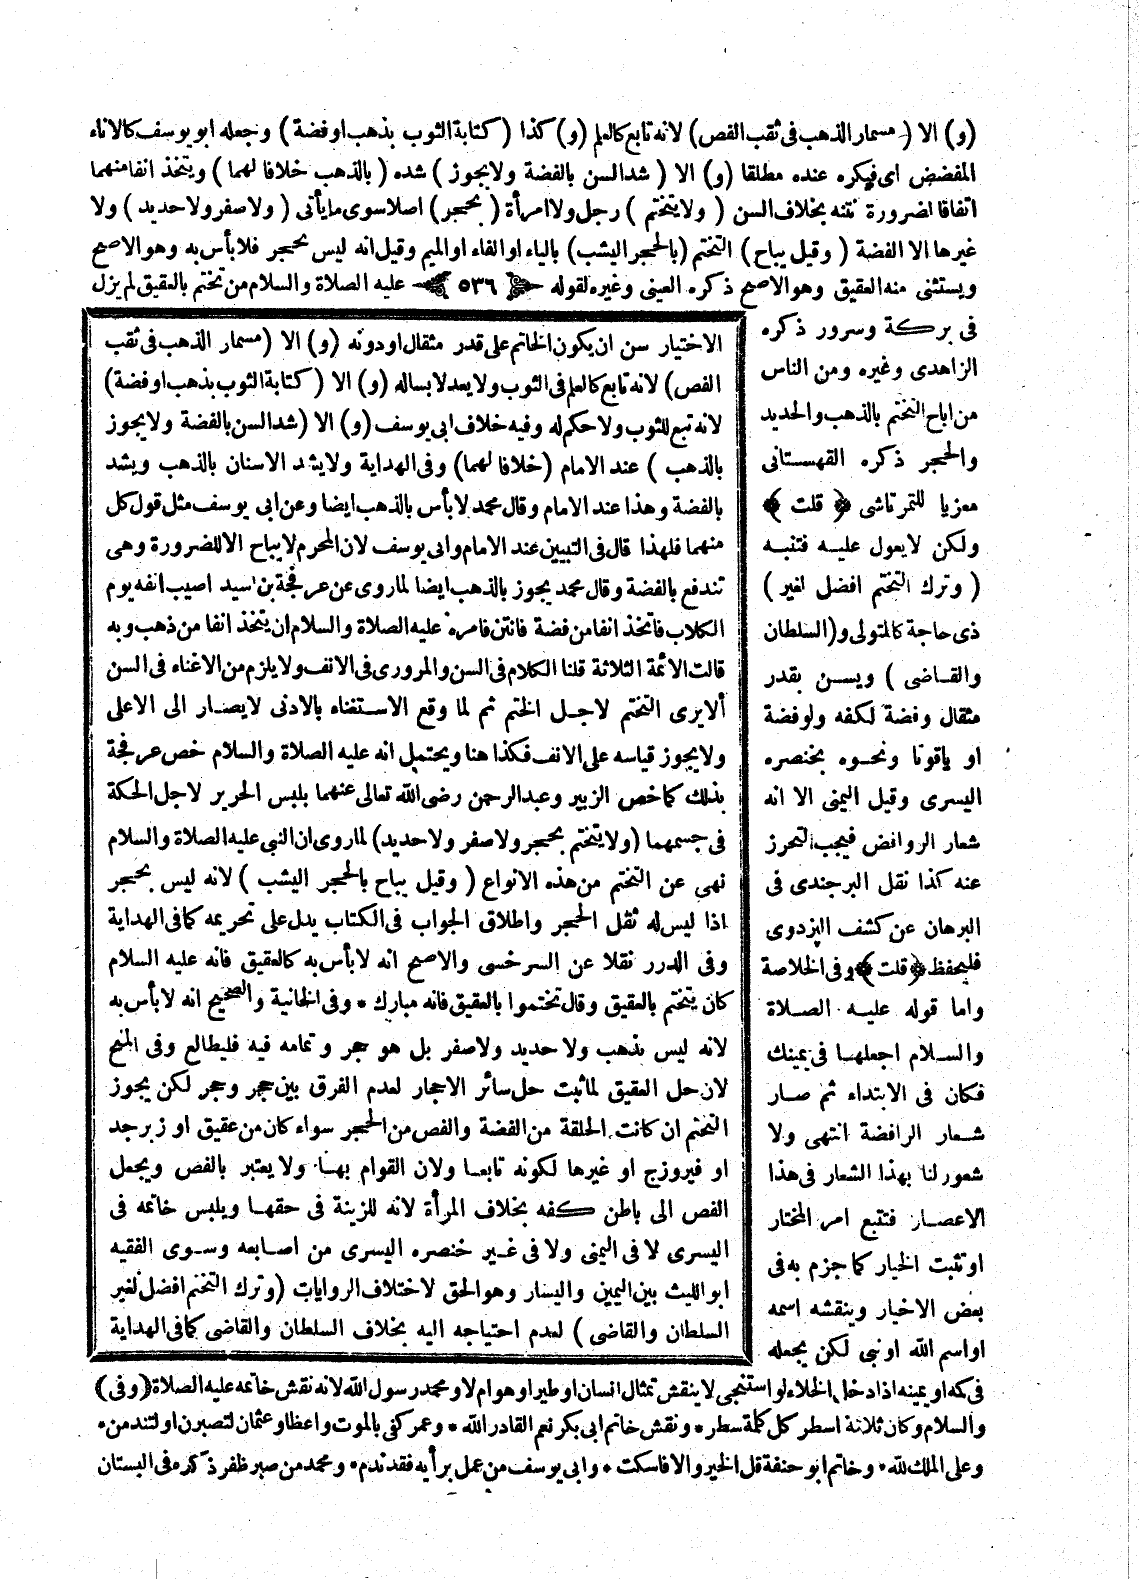 (و) الا (مسمار الذهب فى ثقب الفص) لانه تابع كالعلم (و) كذا (كتابة الثوب بذهب او فضة) وجعله ابو يوسف كالاناء
المفضض اى فيكره عنده مطلقا (و) الا (شد السن بالفضة ولا يجوز) شده (بالذهب خلافا لهما) ويتخذ انفا منهما
اتفاقا لضرورة نتنه بخلاف السن (ولا يتختم) رجل ولا امرأة (بحجر) اصلا سوى ما يأتى (ولا صفر ولا حديد) ولا
غيرها الا الفضة (وقيل يباح) التختم (بالحجر اليشب) بالباء او الفاء او الميم وقيل انه ليس بحجر فلا بأس به وهو الاصح
ويستثنى منه العقيق وهو الاصح ذكره العينى وغيره لقوله ﴿ ٥٣٦ ﴾ عليه الصلاة والسلام من تختم بالعقيق لم يزل
فى بركة وسرور ذكره
الزاهدى وغيره ومن الناس
من اباح التختم بالذهب والحديد
والحجر ذكره القهستانى
معزيا للتمرتاشى ﴿ قلت ﴾
ولكن لا يعول عليه فتنبه
(وترك التختم افضل لغير)
ذى حاجة كالمتولى و(السلطان
والقاضى) ويسن بقدر
مثقال وفضة لكفه ولو فضة
او ياقوتا ونحوه بخنصره
اليسرى وقيل اليمنى الا انه
شعار الروافض فيجب التحرز
عنه كذا نقل البرجندى فى
البرهان عن كشف البزدوى
فليحفظ ﴿ قلت ﴾ وفى الخلاصة
واما قوله عليه الصلاة
والسلام اجعلها فى يمينك
فكان فى الابتداء ثم صار
شعار الرافضة انتهى ولا
شعور لنا بهذا الشعار فى هذا
الاعصار فتتبع امر المختار
او تثبت الخيار كما جزم به فى
بعض الاخيار وينقشه اسمه
او اسم الله او نبى لكن يجعله
الاختيار سن ان يكون الخاتم على قدر مثقال او دونه (و) الا (مسمار الذهب فى ثقب
الفص) لانه تابع كالعلم فى الثوب ولا يعد لابسا له (و) الا (كتابة الثوب بذهب او فضة)
لانه تبع للثوب ولا حكم له وفيه خلاف ابى يوسف (و) الا (شد السن بالفضة ولا يجوز
بالذهب) عند الامام (خلافا لهما) وفى الهداية ولا يشد الاسنان بالذهب ويشد
بالفضة وهذا عند الامام وقال محمد لا بأس بالذهب ايضا وعن ابى يوسف مثل قول كل
منهما فلهذا قال فى التبيين عند الامام وابى يوسف لان المحرم لا يباح الا للضرورة وهى
تندفع بالفضة وقال محمد يجوز بالذهب ايضا لما روى عن عرفجة بن اسيد اصيب انفه يوم
الكلاب فاتخذ انفا من فضة فانتن فامره عليه الصلاة والسلام ان يتخذ انفا من ذهب وبه
قالت الائمة الثلاثة قلنا الكلام فى السن والمروى فى الانف ولا يلزم من الاغناء فى السن
ألا يرى التختم لاجل الختم ثم لما وقع الاستغناء بالادنى لا يصار الى الاعلى
ولا يجوز قياسه على الانف فكذا هنا ويحتمل انه عليه الصلاة والسلام خص عرفجة
بذلك كما خص الزبير وعبد الرحمن رضى الله تعالى عنهما بلبس الحرير لاجل الحكة
فى جسمهما (ولا يتختم بحجر ولا صفر ولا حديد) لما روى ان النبى عليه الصلاة والسلام
نهى عن التختم من هذه الانواع (وقيل يباح بالحجر اليشب) لانه ليس بحجر
اذا ليس له ثقل الحجر واطلاق الجواب فى الكتاب يدل على تحريمه كما فى الهداية
وفى الدرر نقلا عن السرخسى والاصح انه لا بأس به كالعقيق فانه عليه السلام
كان يتختم بالعقيق وقال تختموا بالعقيق فانه مبارك * وفى الخانية والصحيح انه لا بأس به
لانه ليس بذهب ولا حديد ولا صفر بل هو حجر وتمامه فيه فليطالع وفى المنح
لان حل العقيق لما ثبت حل سائر الاحجار لعدم الفرق بين حجر وحجر لكن يجوز
التختم ان كانت الحلقة من الفضة والفص من الحجر سواء كان من عقيق او زبرجد
او فيروزج او غيرها لكونه تابعا ولان القوام بها ولا يعتبر بالفص ويجعل
الفص الى باطن كفه بخلاف المرأة لانه للزينة فى حقها ويلبس خاتمه فى
اليسرى لا فى اليمنى ولا فى غير خنصره اليسرى من اصابعه وسوى الفقيه
ابو الليث بين اليمين واليسار وهو الحق لاختلاف الروايات (وترك التختم افضل لغير
السلطان والقاضى) لعدم احتياجه اليه بخلاف السلطان والقاضى كما فى الهداية
فى كمه او يمينه اذا دخل الخلاء لو استنجى لا ينقش تمثال انسان او طير او هوام لا ومحمد رسول الله لانه نقش خاتمه عليه الصلاة (وفى)
والسلام وكان ثلاثة اسطر كل كلمة سطر * ونقش خاتم ابى بكر نعم القادر الله * وعمر كفى بالموت واعظا وعثمان لتصبرن او لتندمن *
وعلى الملك لله * وخاتم ابو حنفة قل الخير والا فاسكت * وابى يوسف من عمل برأيه فقد ندم * ومحمد من صبر ظفر ذكره فى البستان